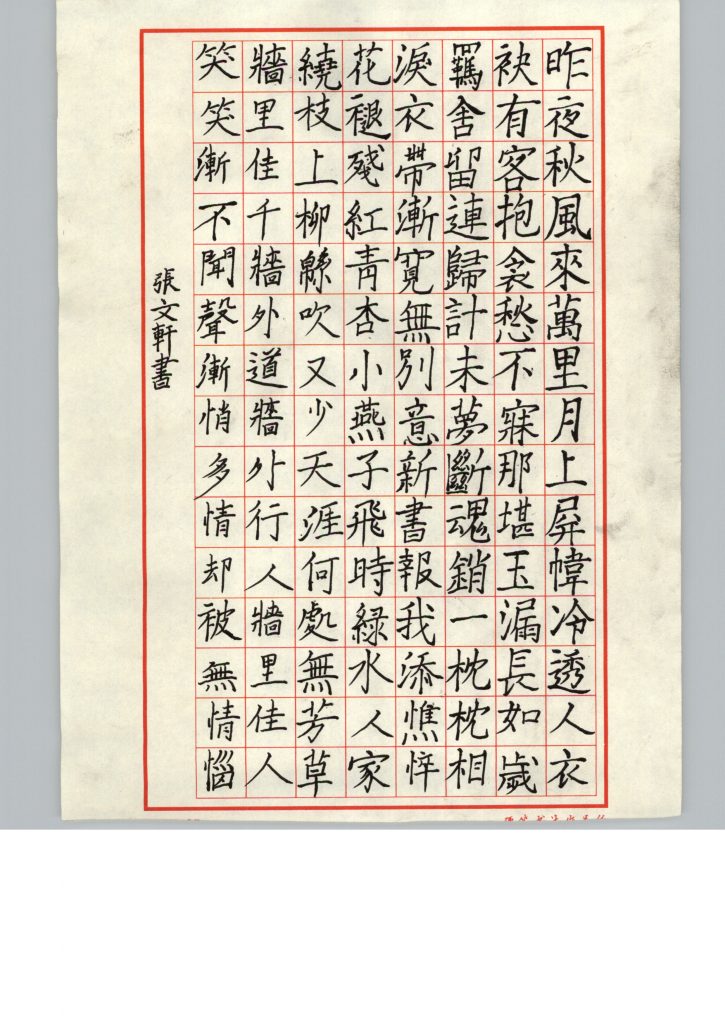 昨夜秋風來萬里月上屏幃冷透人衣
袂有客抱衾愁不寐那堪玉漏長如歲
羈舍留連歸計未夢斷魂銷一枕枕相
淚衣帶漸寬無別意新書報我添憔悴
花褪殘紅青杏小燕子飛時綠水人家
繞枝上柳緜吹又少天涯何處無芳草
牆里佳千牆外道牆外行人牆里佳人
笑笑漸不聞聲漸悄多情却被無情惱
張文軒書